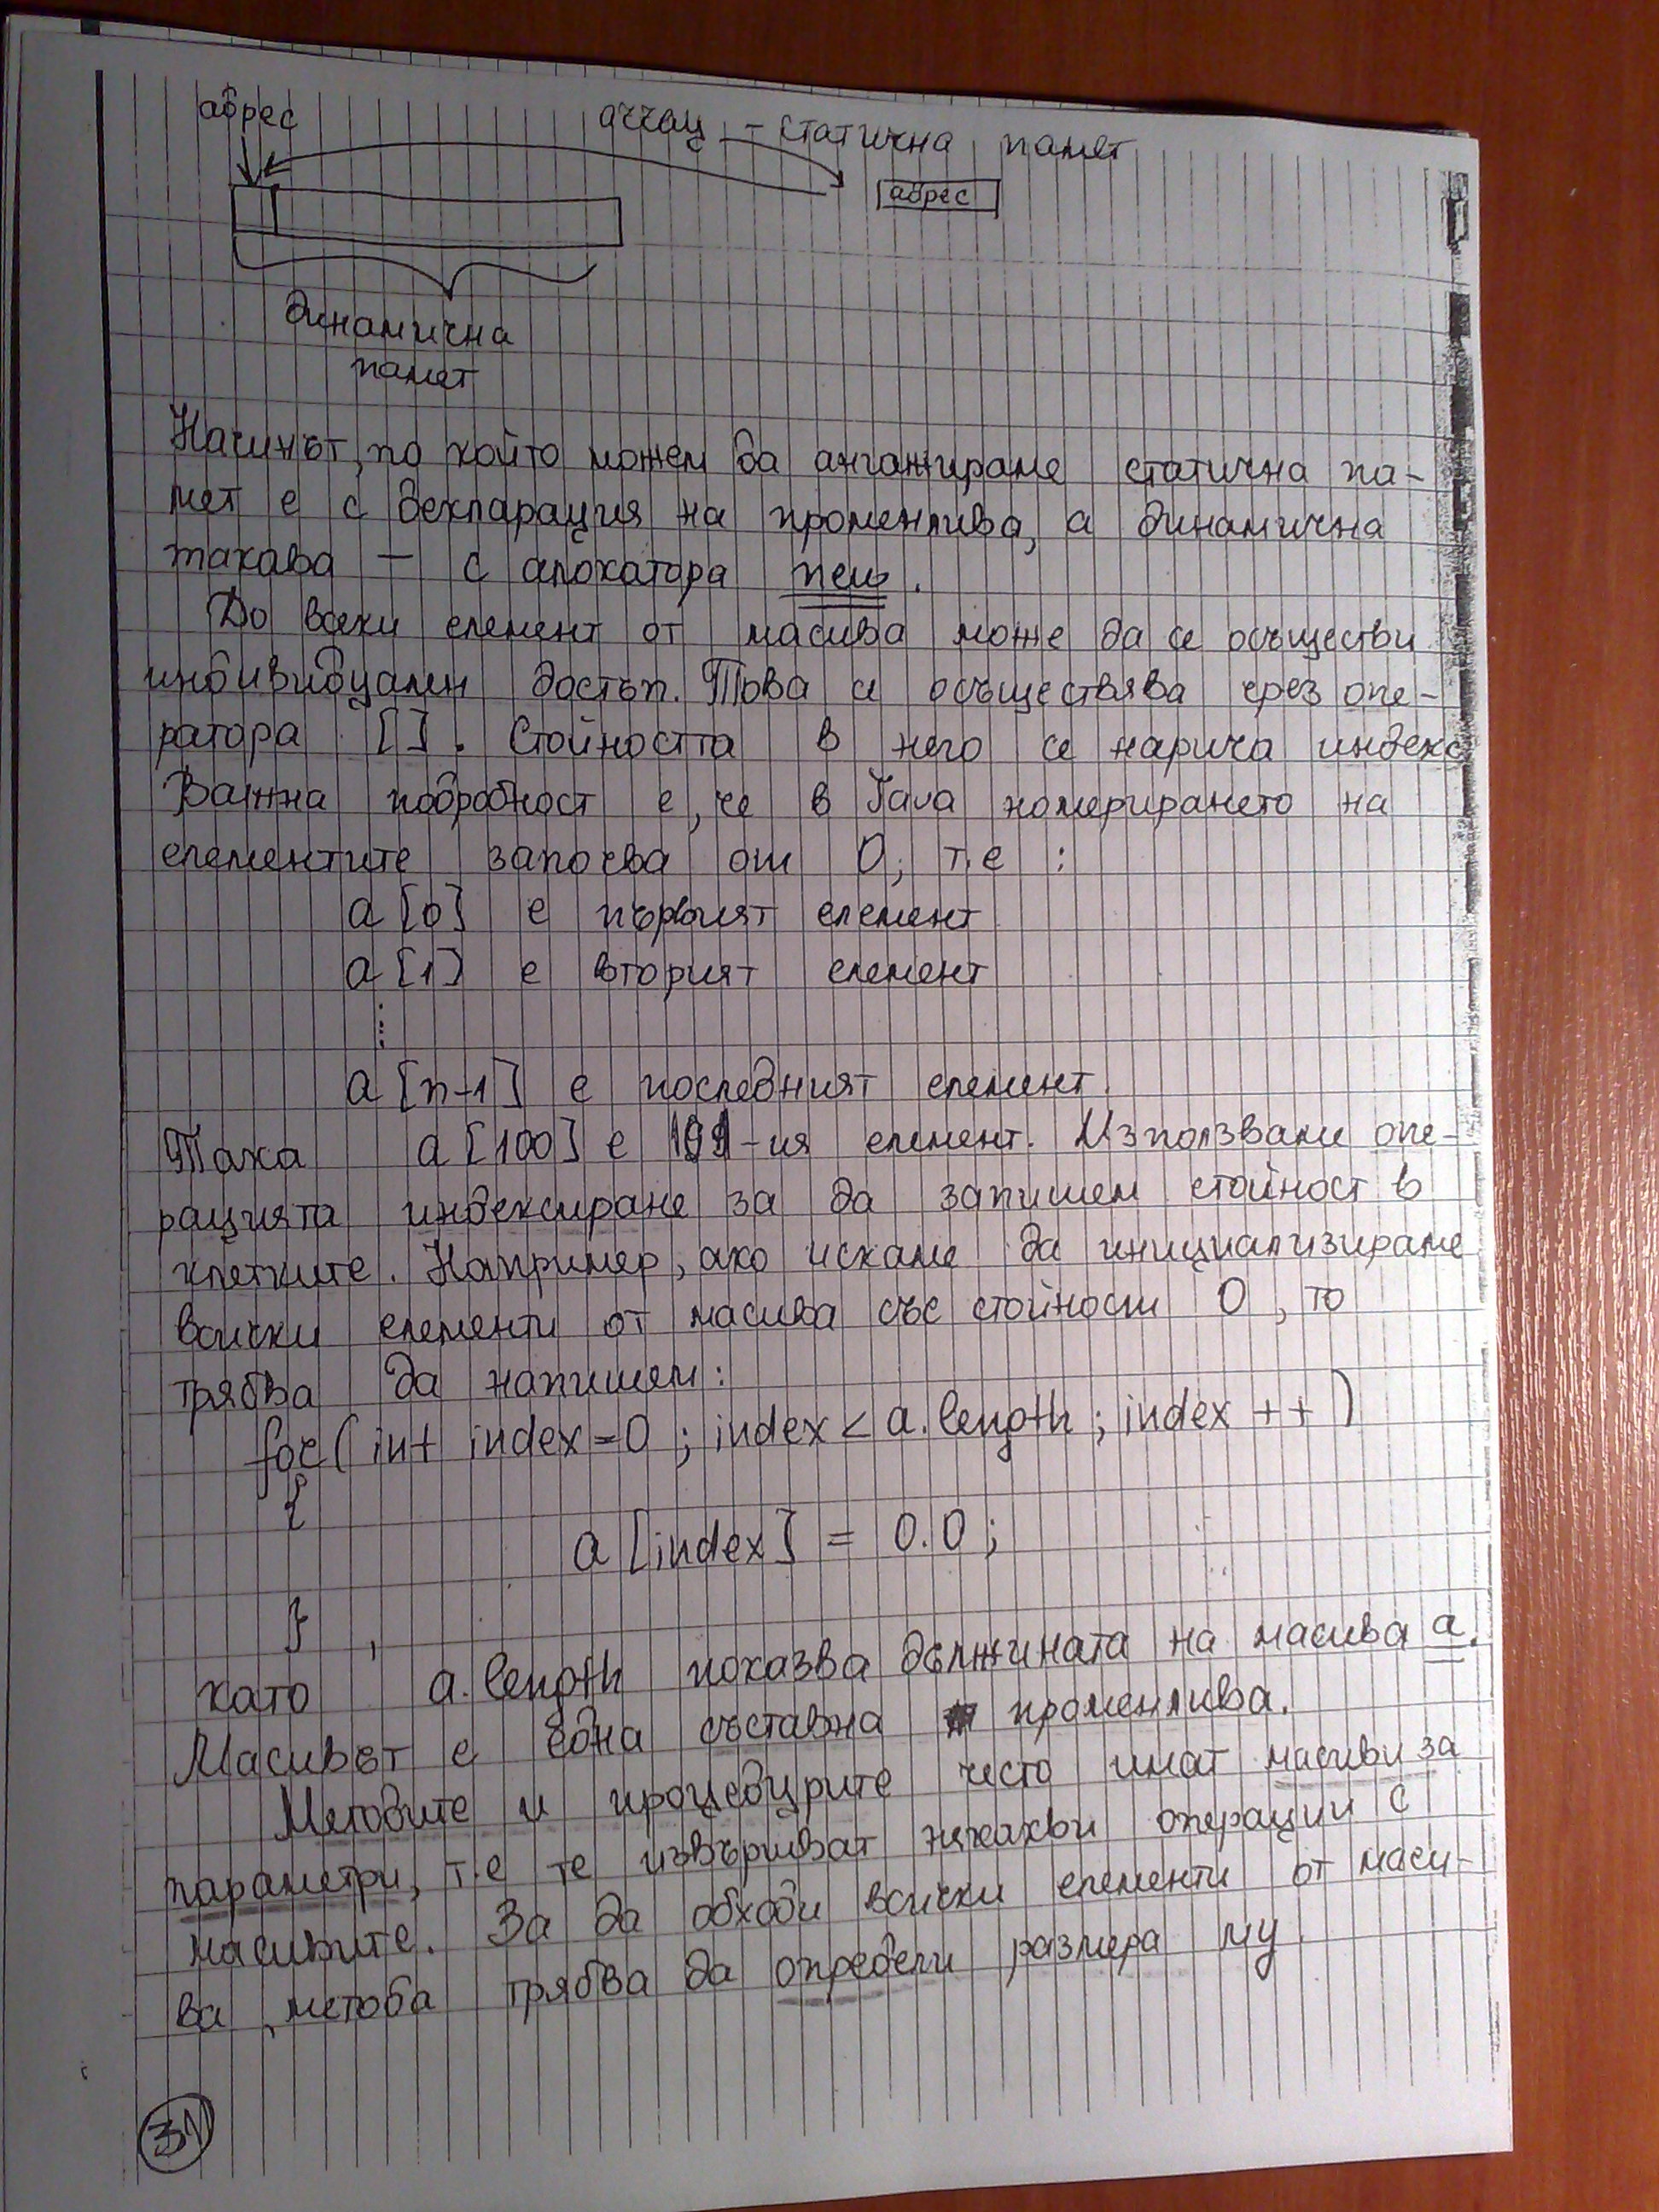 адрес
array – статична памет
адрес
динамична
памет
Начинът, по който можем да ангажираме статична па-
мет е с декларация на променлива, а динамична
такава – с алокатора new.
До всеки елемент от масива може да се осъществи
индивидуален достъп. Това се осъществява чрез опе-
ратора []. Стойността в него се нарича индекс
Важна подробност е, че в Java номерирането на
елементите започва от 0, т.е :
a [0] е първият елемент
a [1] е вторият елемент
⋮
a [n-1] е последният елемент.
Така a [100] е 101-ия елемент. Използваме опе-
рацията индексиране за да запишем стойност в
клетките. Например, ако искаме да инициализираме
всички елементи от масива със стойност 0, то
трябва да напишем:
for( int index=0 ; index < a.length ; index ++ )
{
a [index] = 0.0;
} ,
като a.length показва дължината на масива a.
Масивът е една съставна променлива.
Методите и процедурите често имат масиви за
параметри, т.е те извършват някакви операции с
масивите. За да обходи всички елементи от маси-
ва, метода трябва да определи размера му
31